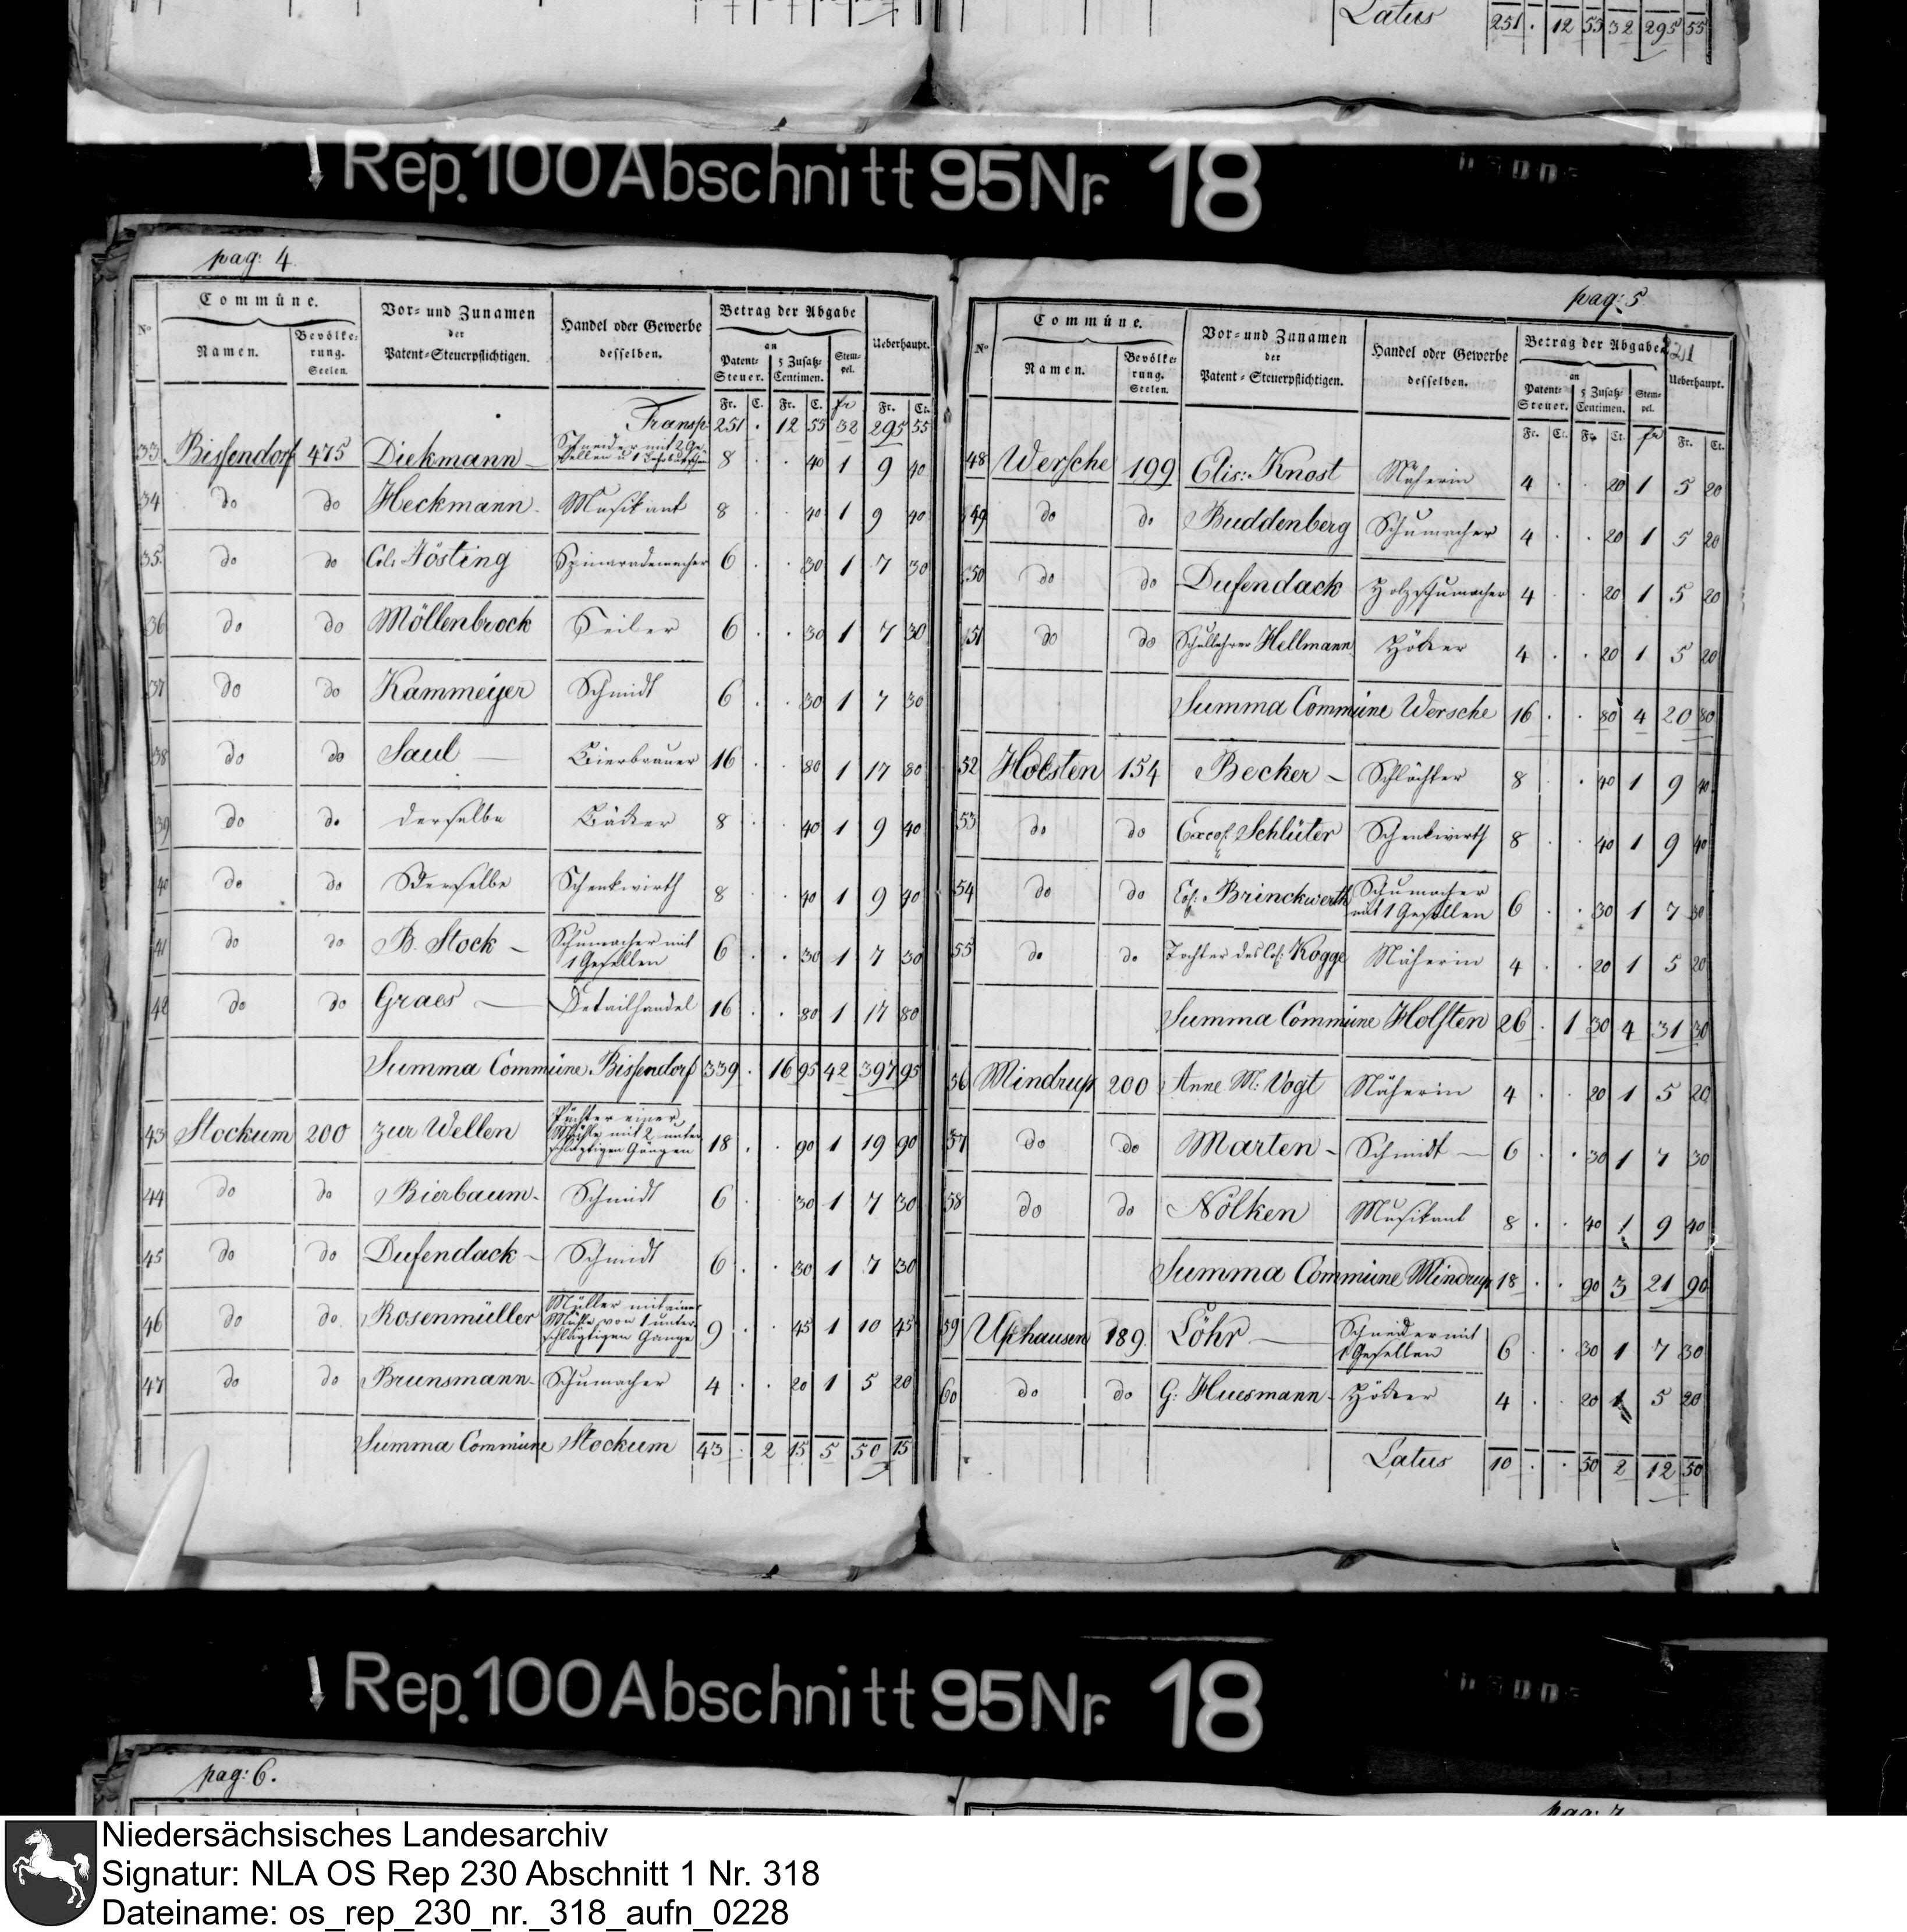 Latus 251 . 12 55 32 295 55
Rep. 100 Abschnitt 95 Nr. 18
pag: 4
No Commüne. Vor= und Zunamen der Patent=Steuerpflichtigen. Handel oder Gewerbe desselben. Betrag der Abgabe Ueberhaupt.
Namen. Bevölkerung. Seelen. an Patent=Steuer. 5 Zusatz=Centimen. Stempel.
Fr. C. Fr. C. fr Fr. Ct.
Transp 251 . 12 55 32 295 55
33 Bissendorf 475 Diekmann Schneider mit 2 Gesellen u 1 8 . . 40 1 9 40
34 do do Heckmann Musikant 8 . . 40 1 9 40
35 do do Col: Jösting Spinnrademacher 6 . . 30 1 7 30
36 do do Möllenbrock Seiler 6 . . 30 1 7 30
37 do do Kammeijer Schmidt 6 . . 30 1 7 30
38 do do Saul Bierbrauer 16 . . 80 1 17 80
39 do do derselbe Bäcker 8 . . 40 1 9 40
40 do do Derselbe Schenkwirth 8 . . 40 1 9 40
41 do do B. Stock Schumacher mit 1 Gesellen 6 . . 30 1 7 30
42 do do Graes Detailhandel 16 . . 80 1 17 80
Summa Commüne Bissendorf 339 . 16 95 42 397 95
43 Stockum 200 zur Wellen Pächter einer Mühle mit 2 unterschlägtigen Gängen 18 . . 90 1 19 90
44 do do Bierbaum Schmidt 6 . . 30 1 7 30
45 do do Dufendack Schmidt 6 . . 30 1 7 30
46 do do Rosenmüller Müller mit einer Mühle von 1 unterschlägtigen Gange 9 . . 45 1 10 45
47 do do Brunsmann Schumacher 4 . . 20 1 5 20
Summa Commüne Stockum 43 . 2 15 5 50 15
pag: 5
221
No Commüne. Vor= und Zunamen der Patent=Steuerpflichtigen. Handel oder Gewerbe desselben. Betrag der Abgabe Ueberhaupt.
Namen. Bevölkerung. Seelen. an Patent=Steuer. 5 Zusatz=Centimen. Stempel.
Fr. Ct. Fr. Ct. fr Fr. Ct.
48 Wersche 199 Elis: Knost Näherin 4 . . 20 1 5 20
49 do do Buddenberg Schumacher 4 . . 20 1 5 20
50 do do Dufendack Holzschumacher 4 . . 20 1 5 20
51 do do Schullehrer Hellmann Höker 4 . . 20 1 5 20
Summa Commüne Wersche 16 . . 80 4 20 80
52 Holsten 154 Becker Schlächter 8 . . 40 1 9 40
53 do do Schlüter Schenkwirth 8 . . 40 1 9 40
54 do do Col: Brinckwerth Schumacher mit 1 Gesellen 6 . . 30 1 7 30
55 do do Tochter des Col: Kogge Näherin 4 . . 20 1 5 20
Summa Commüne Holsten 26 . 1 30 4 31 30
56 Mindrup 200 Anne M: Vogt Näherin 4 . . 20 1 5 20
57 do do Marten Schmidt 6 . . 30 1 7 30
58 do do Nölken Musikant 8 . . 40 1 9 40
Summa Commüne Mindrup 18 . . 90 3 21 90
59 Uphausen 189 Löhr Schneider mit 1 Gesellen 6 . . 30 1 7 30
60 do do G: Huesmann Höker 4 . . 20 1 5 20
Latus 10 . . 50 2 12 50
Rep. 100 Abschnitt 95 Nr. 18
pag: 6.
pag: 7
Niedersächsisches Landesarchiv
Signatur: NLA OS Rep 230 Abschnitt 1 Nr. 318
Dateiname: os_rep_230_nr._318_aufn_0228